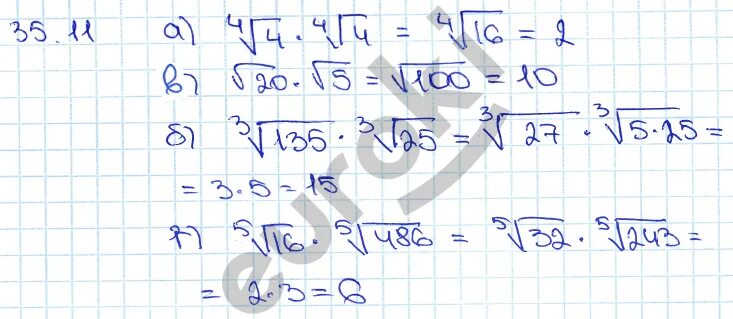 35.11 а) ∜4 · ∜4 = ∜16 = 2
в) √20 · √5 = √100 = 10
б) ∛135 · ∛25 = ∛27 · ∛5·25 =
= 3·5 = 15
г) ⁵√16 · ⁵√486 = ⁵√32 · ⁵√243 =
= 2·3 = 6
euroki